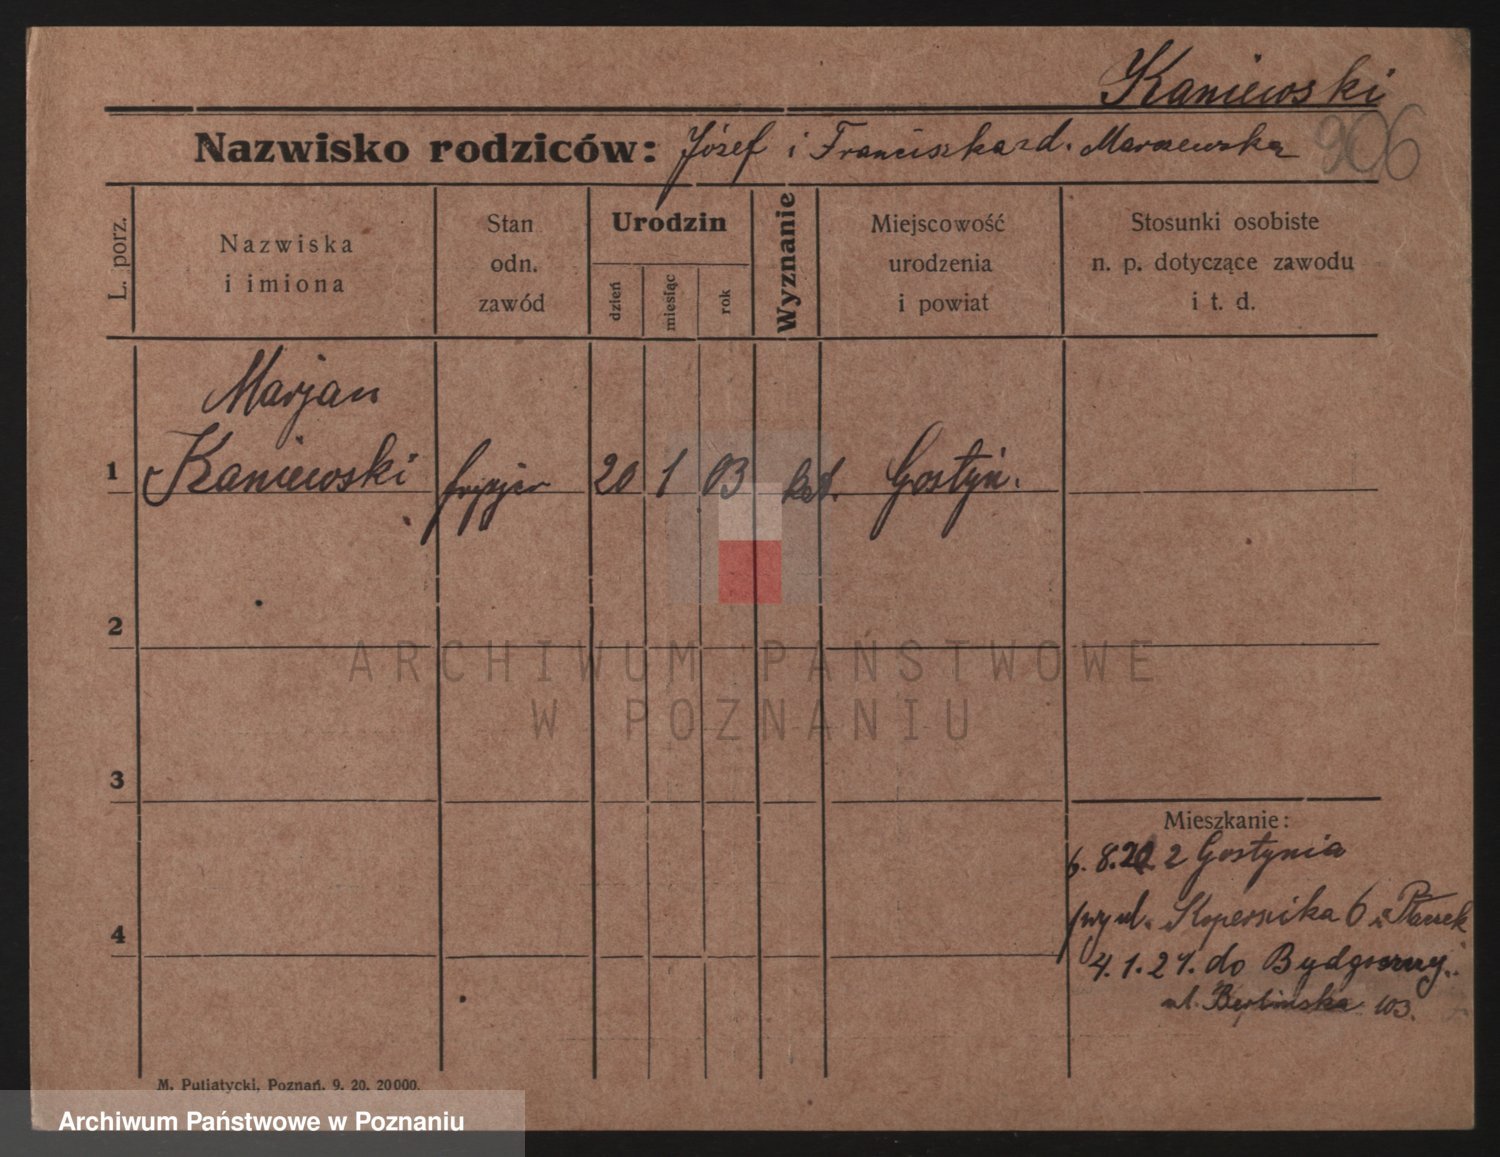 Kaniewski
Nazwisko rodziców: Józef i Franciszka zd. Marszewska
906
L. porz.
Nazwiska
i imiona
Stan
odn.
zawód
Urodzin
dzień
miesiąc
rok
Wyznanie
Miejscowość
urodzenia
i powiat
Stosunki osobiste
n. p. dotyczące zawodu
i t. d.
Marjan
1 Kaniewski fryzjer 20 1 03 kat. Gostyń.
2
ARCHIWUM PAŃSTWOWE
W POZNANIU
3
Mieszkanie:
6. 8. 22 z Gostynia
ul. Kopernika 6
4
4. 1. 21. do Bydgoszczy
ul. Berlinska 103.
M. Putiatycki, Poznań. 9. 20. 20000.
Archiwum Państwowe w Poznaniu